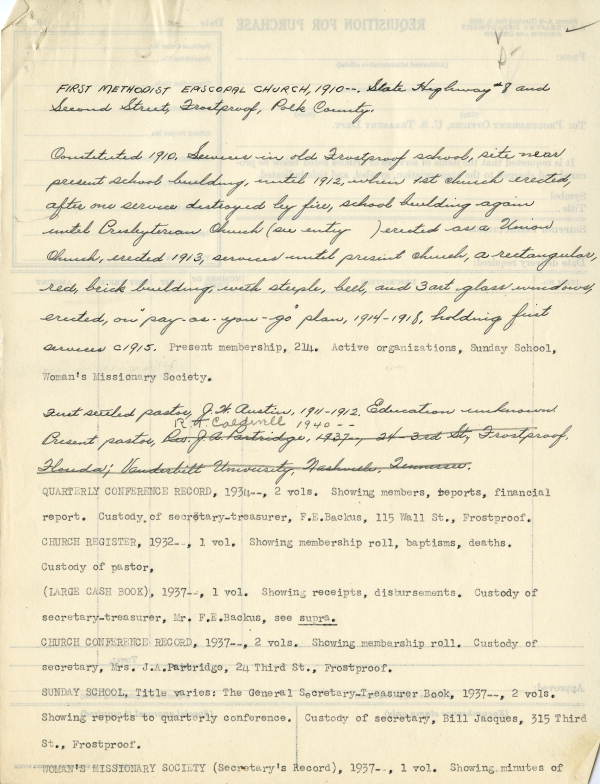 FIRST METHODIST EPISCOPAL CHURCH, 1910--. State Highway #8 and
Second Street, Frostproof, Polk County.
Constituted 1910. Services in old Frostproof school, site near
present school building, until 1912, when 1st church erected,
after one service destroyed by fire, school building again
until Presbyterian Church (see entry ) erected as a Union
Church, erected 1913, services until present church, a rectangular,
red, brick building, with steeple, bell, and 3 art glass windows,
erected, on "pay-as-you-go" plan, 1914-1918, holding first
services c1915. Present membership, 214. Active organizations, Sunday School,
Woman's Missionary Society.
First settled pastor, J. H. Austin, 1911-1912. Education unknown
R. H. Caldwell 1940--
Present pastor, Rev. J. A. Partridge, 1937--, 24-3rd St., Frostproof,
Florida; Vanderbilt University, Nashville, Tennessee.
QUARTERLY CONFERENCE RECORD, 1934--, 2 vols. Showing members, reports, financial
report. Custody of secretary-treasurer, F.E.Backus, 115 Wall St., Frostproof.
CHURCH REGISTER, 1932--, 1 vol. Showing membership roll, baptisms, deaths.
Custody of pastor,
(LARGE CASH BOOK), 1937--, 1 vol. Showing receipts, disbursements. Custody of
secretary-treasurer, Mr. F.E.Backus, see supra.
CHURCH CONFERENCE RECORD, 1937--, 2 vols. Showing membership roll. Custody of
secretary, Mrs. J.A.Partridge, 24 Third St., Frostproof.
SUNDAY SCHOOL, Title varies: The General Secretary-Treasurer Book, 1937--, 2 vols.
Showing reports to quarterly conference. Custody of secretary, Bill Jacques, 315 Third
St., Frostproof.
WOMAN'S MISSIONARY SOCIETY (Secretary's Record), 1937--, 1 vol. Showing minutes of